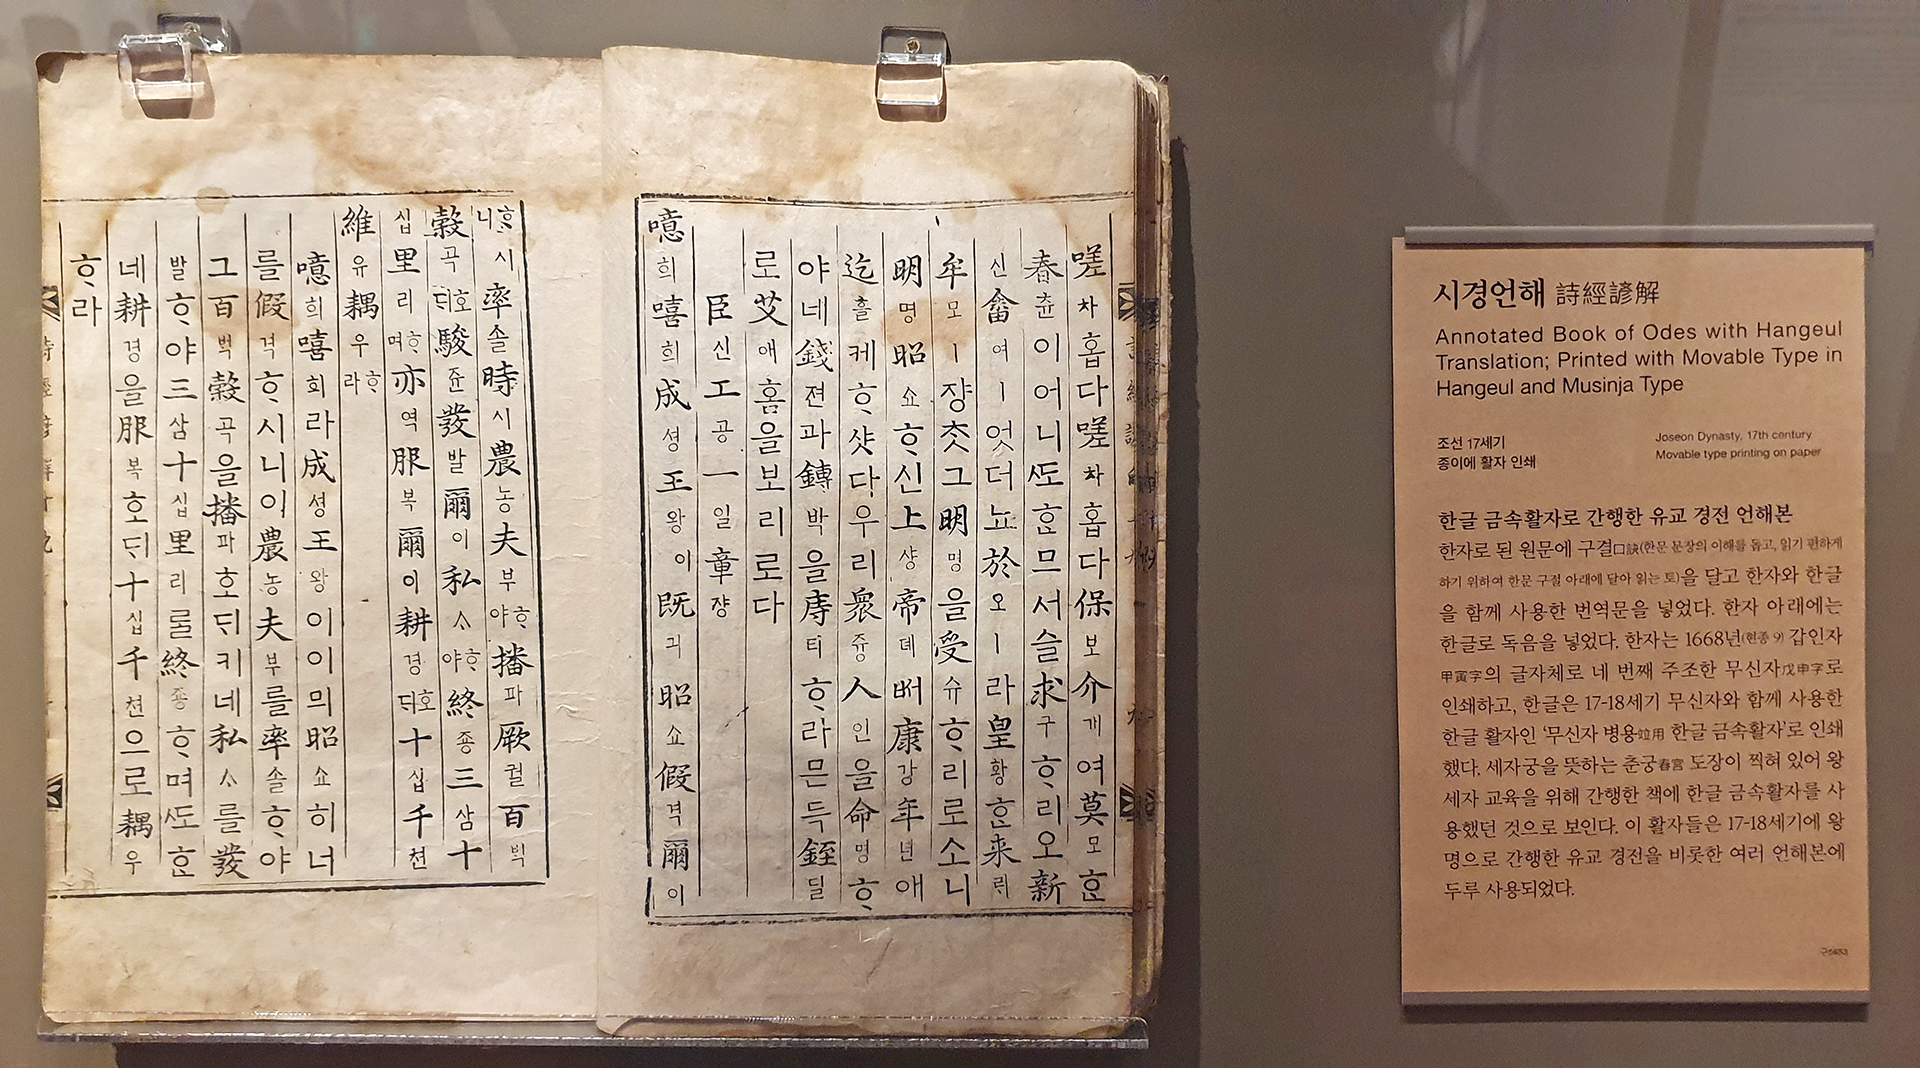 嗟차홉다嗟차홉다保보介개여莫모ᄒᆞᆫ
春츈이어니ᄯᅩᄒᆞᆫ므서슬求구ᄒᆞ리오新
신畬여ㅣ엇더뇨於오ㅣ라皇황ᄒᆞᆫ來ᄅᆡ
牟모ㅣ쟝ᄎᆞᆺ그明명을受슈ᄒᆞ리로소니
明명昭쇼ᄒᆞ신上샹帝뎨ᄡᅥ康강年년애
迄흘케ᄒᆞ샷다우리衆즁人인을命명ᄒᆞ
야네錢젼과鎛박을庤티ᄒᆞ라믄득銍딜
로艾애홈을보리로다
臣신工공一일章쟝
噫희嘻희成셩王왕이既긔昭쇼假격爾이
ᄒᆞ니시率솔時시農농夫부ᄒᆞ야播파厥궐百ᄇᆡᆨ
穀곡호ᄃᆡ駿쥰發발爾이私ᄉᆞᄒᆞ야終죵三삼十
십里리ᄒᆞ며亦역服복爾이耕경호ᄃᆡ十십千쳔
維유耦우ᄒᆞ라
噫희嘻희라成셩王왕이이믜昭쇼히너
를假격ᄒᆞ시니이農농夫부를率솔ᄒᆞ야
그百ᄇᆡᆨ穀곡을播파호ᄃᆡ키네私ᄉᆞ를發
발ᄒᆞ야三삼十십里리를終죵ᄒᆞ며ᄯᅩᄒᆞᆫ
네耕경을服복호ᄃᆡ十십千쳔으로耦우
ᄒᆞ라
시경언해 詩經諺解
Annotated Book of Odes with Hangeul
Translation; Printed with Movable Type in
Hangeul and Musinja Type
조선 17세기
종이에 활자 인쇄
Joseon Dynasty, 17th century
Movable type printing on paper
한글 금속활자로 간행한 유교 경전 언해본
한자로 된 원문에 구결口訣(한문 문장의 이해를 돕고, 읽기 편하게
하기 위하여 한문 구절 아래에 달아 읽는 토)을 달고 한자와 한글
을 함께 사용한 번역문을 넣었다. 한자 아래에는
한글로 독음을 넣었다. 한자는 1668년(현종 9) 갑인자
甲寅字의 글자체로 네 번째 주조한 무신자戊申字로
인쇄하고, 한글은 17-18세기 무신자와 함께 사용한
한글 활자인 ‘무신자 병용竝用 한글 금속활자’로 인쇄
했다. 세자궁을 뜻하는 춘궁春宮 도장이 찍혀 있어 왕
세자 교육을 위해 간행한 책에 한글 금속활자를 사
용했던 것으로 보인다. 이 활자들은 17-18세기에 왕
명으로 간행한 유교 경전을 비롯한 여러 언해본에
두루 사용되었다.